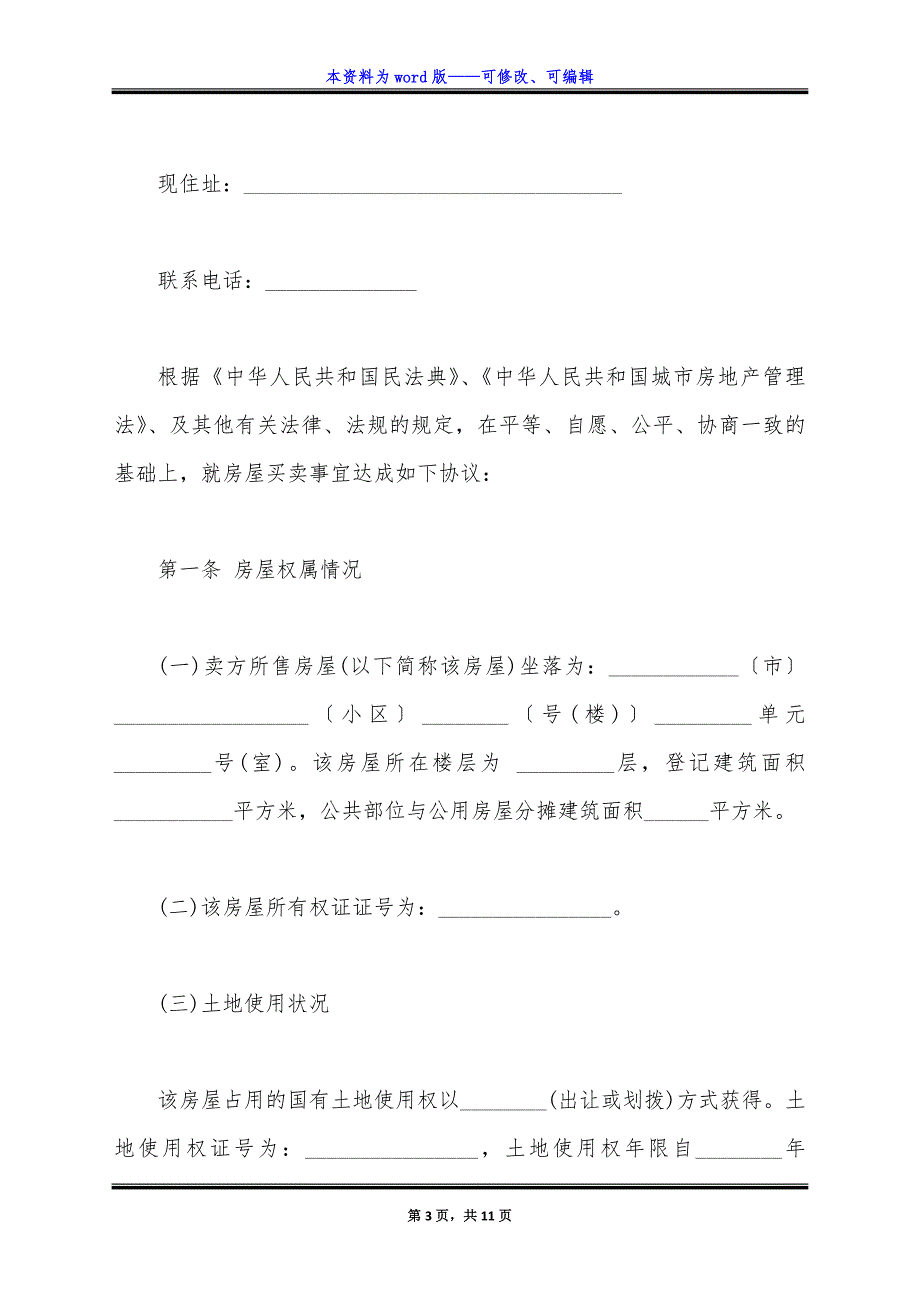 本资料为 word 版——可修改、可编辑
现住址：___________________________________
联系电话：______________
根据《中华人民共和国民法典》、《中华人民共和国城市房地产管理
法》、及其他有关法律、法规的规定，在平等、自愿、公平、协商一致的
基础上，就房屋买卖事宜达成如下协议：
第一条 房屋权属情况
(一)卖方所售房屋(以下简称该房屋)坐落为：____________〔市〕
__________________〔小区〕________〔号(楼)〕_________单元
_________号(室)。该房屋所在楼层为 _________层，登记建筑面积
___________平方米，公共部位与公用房屋分摊建筑面积______平方米。
(二)该房屋所有权证证号为：________________。
(三)土地使用状况
该房屋占用的国有土地使用权以________(出让或划拨)方式获得。土
地使用权证号为：________________，土地使用权年限自________年
第 3 页，共 11 页